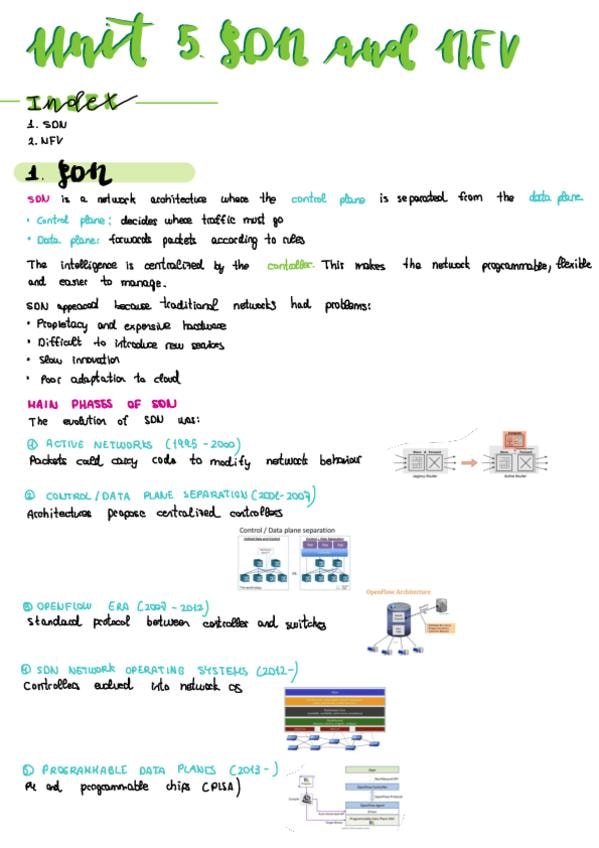 Unit 5. SDN and NFV
Index
1. SDN
2. NFV
1. SDN
SDN is a network architecture where the control plane is separated from the data plane
• Control plane: decides where traffic must go
• Data plane: forwards packets according to rules
The intelligence is centralized by the controller. This makes the network programmable, flexible
and easier to manage.
SDN appeared because traditional networks had problems:
• Propietary and expensive hardware
• Difficult to introduce new services
• Slow innovation
• Poor adaptation to cloud
MAIN PHASES OF SDN
The evolution of SDN was:
① ACTIVE NETWORKS (1995-2000)
Packets could carry code to modify network behaviour
Legacy Router
Active Router
② CONTROL/DATA PLANE SEPARATION (2001-2007)
Architectures propose centralized controllers
Control / Data plane separation
③ OPENFLOW ERA (2007-2012)
Standard protocol between controller and switches
OpenFlow Architecture
④ SDN NETWORK OPERATING SYSTEMS (2012-)
Controllers evolved into network OS
⑤ PROGRAMMABLE DATA PLANES (2013-)
P4 and programmable chips (PISA)
OpenFlow Controller
OpenFlow Protocol
OpenFlow Agent